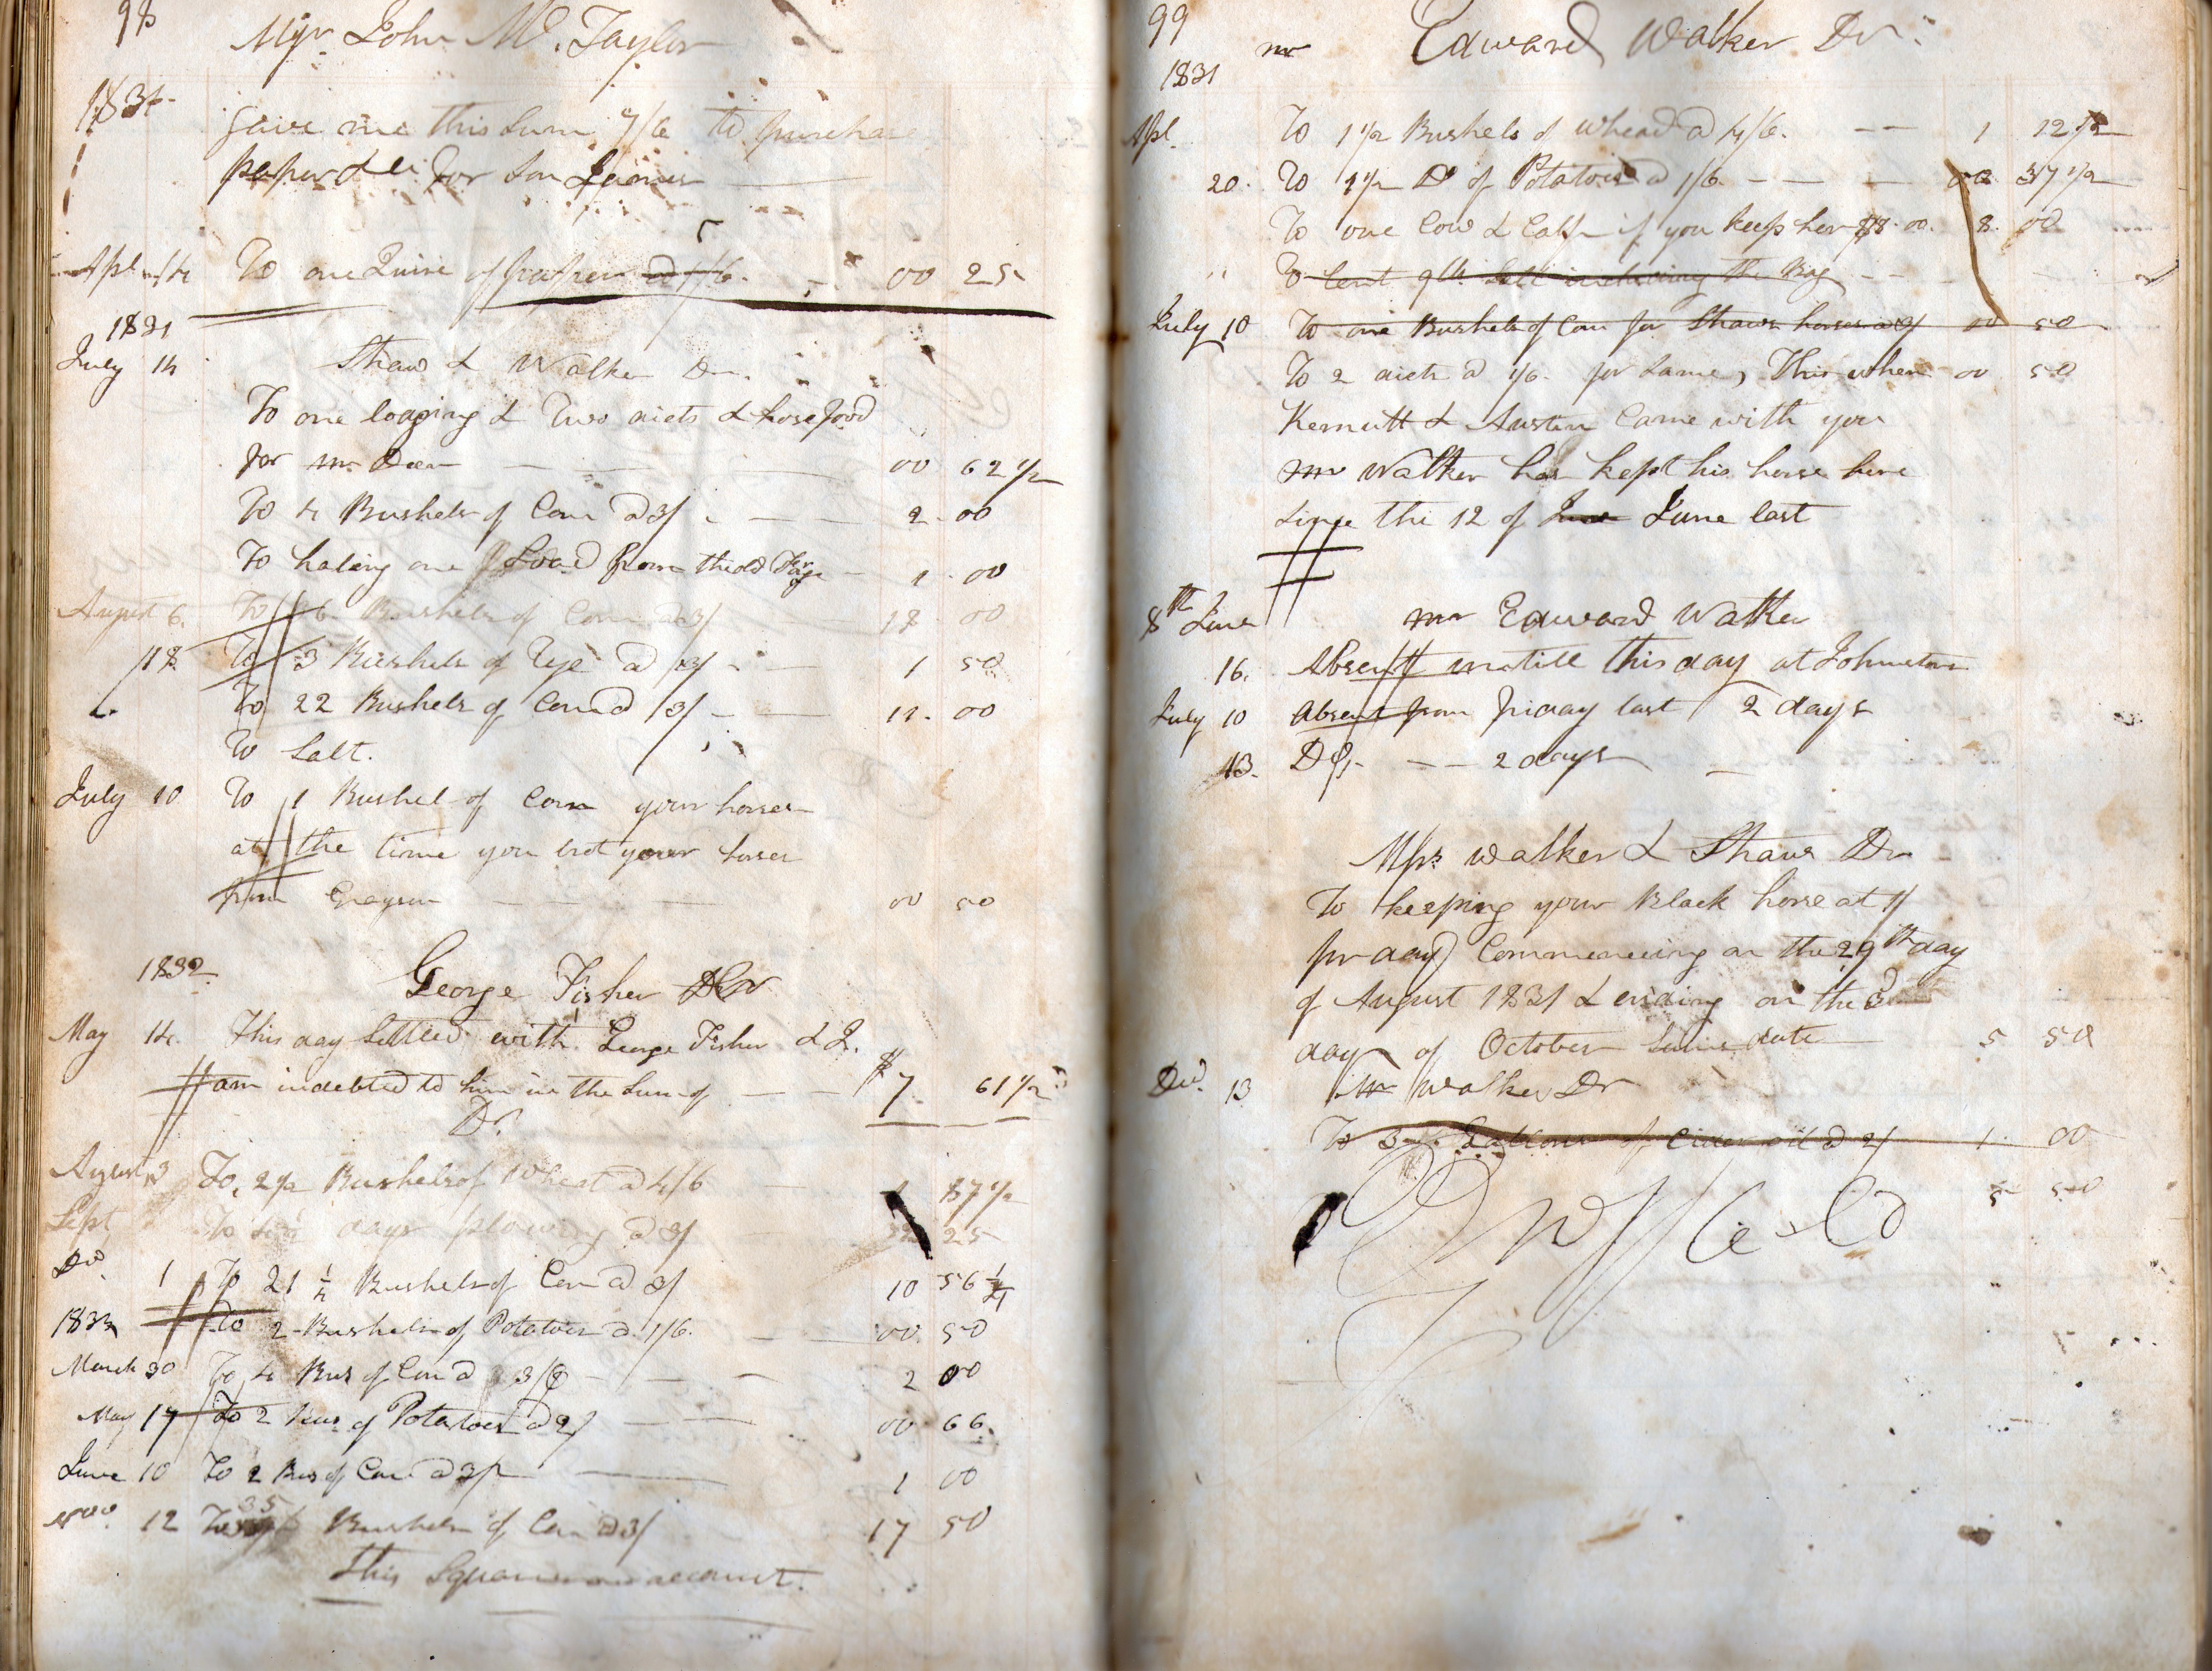 98
Mjr John W. Taylor
1831
gave me this Sum 7/6 to purchase
paper &c for Son James
Apl 14 To one Quire of paper a 1/6. 00 25
1831
July 14 Shaw & Walker Dr.
To one loaging & Two diets & horse food
for Mr Deen 00 62 1/2
To 4 Bushels of Corn a 3/ 2.00
To haling one Load from the old Forge 1.00
August 6. To 36 Bushels of Corn a 3/ 18 00
18 To 3 Bushels of Rye a 3/ 1 50
" To 22 Bushels of Corn a 3/ 11.00
To Salt.
July 10 To 1 Bushel of Corn your horses
at the time you brot your horses
from Grayson 00 50
1832 George Fisher Dr
May 14. This day Settled with George Fisher & I.
am indebted to him in the Sum of $7 61 1/2
Dr.
August 3 To 2 1/2 Bushels of Wheat a 4/6 1 87 1/2
Sept To days plowing a 3/ 25
Dec. 1 To 21 1/4 Bushels of Corn a 3/ 10 56 1/4
1833 To 2 Bushels of Potatoes a 1/6. 00. 50
March 30 To 4 Bus of Corn a 3/0 2 00
May 17 To 2 Bus of Potatoes a 2/ 00 66
June 10 To 2 Bus of Corn a 3/ 1 00
Nov. 12 To 35 Bushels of Corn a 3/ 17 50
This Squares our account.
99
mr Edward Walker Dr.
1831
Apl. To 1 1/2 Bushels of Whead a 4/6. 1 12 1/2
20. To 1 1/2 Do of Potatoes a 1/6 00 37 1/2
To one Cow & Calf if you keep her $8.00. 8. 00
" To Cent 9 lb Salt including the Bag
July 10 To one Bushels of Corn for Shaws horses a 3/ 00 50
To 2 diets a 1/6. for Same, This when 00 50
Kernutt & Austin Came with you
mr Walker has kept his horse here
Since the 12 of June June last
8th June mr Edward Walker
16. Absent untill this day at Johnston
July 10 Absent from friday last 2 days
13. Do, 2 days
Mrs Walker & Shaws Dr
To keeping your Black horse at 1/
pr day Commencing on the 29th day
of August 1831 & ending on the 3d
day of October Same date 5 50
Dec. 13 Mr Walker Dr
To 3 Gallons of Cider oil a 2/ 1. 00
5 50